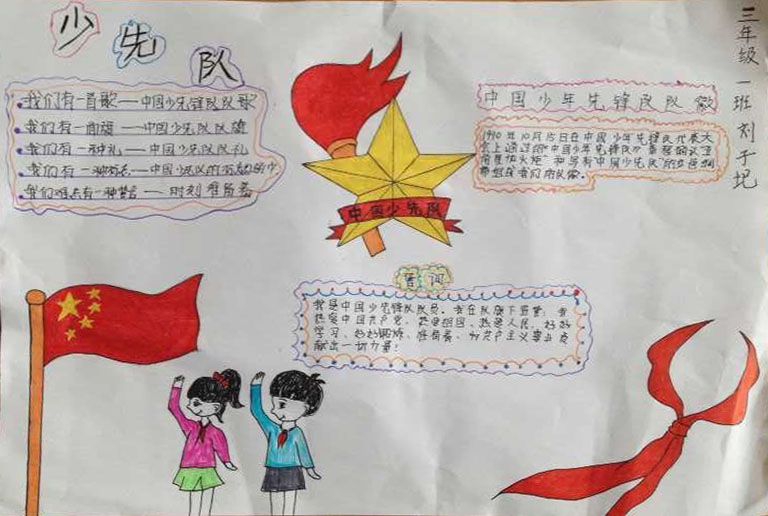 少先队
我们有一首歌——中国少先锋队队歌
我们有一面旗——中国少先队队旗
我们有一种礼——中国少先队队礼
我们有一种——中国少先队的
我们有一种——时刻准备着
中国少先队
中国少年先锋队队徽
1990年10月15日在中国少年先锋队代表大
会上通过的“中国少年先锋队》
火炬”和写有“中国少先队”的
我们的队徽。
三年级一班刘子圯
誓词
我是中国少年先锋队队员。我在队旗下宣誓：我
热爱中国共产党、热爱祖国、热爱人民，好好
学习、好好锻炼、准备着、为共产主义事业贡
献出一切力量！